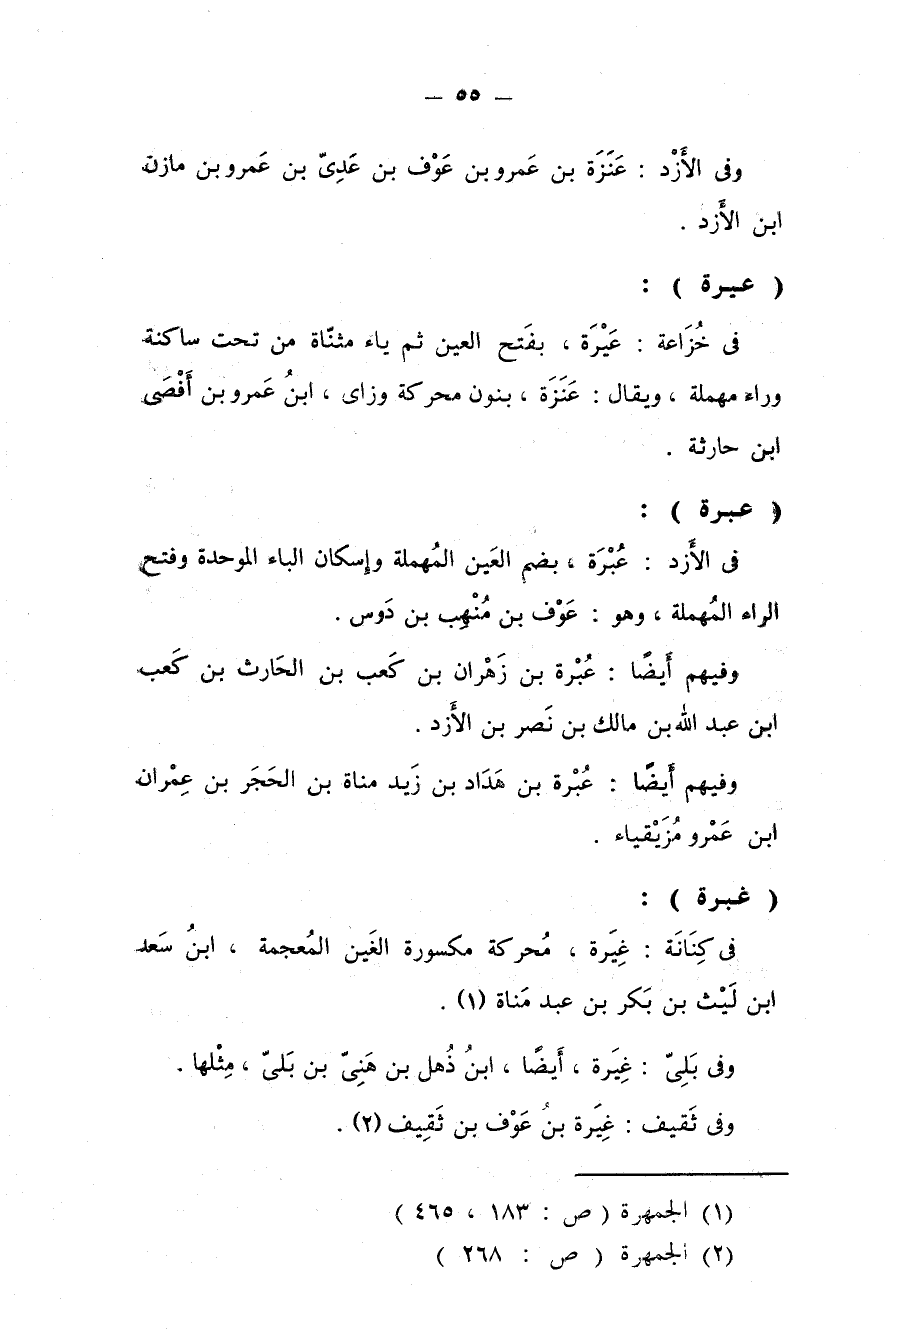 — ٥٥ —
وفى الأَزْد : عَنَزَة بن عَمرو بن عَوْف بن عَدِىّ بن عَمرو بن مازن
ابن الأَزد .
( عيرة ) :
فى خُزَاعة : عَيْرَة ، بفَتح العين ثم ياء مثنّاة من تحت ساكنة
وراء مهملة ، ويقال : عَنَزَة ، بنون محركة وزاى ، ابنُ عَمرو بن أَفْصَى
ابن حارثة .
( عبرة ) :
فى الأَزد : عُبْرَة ، بضم العَين المُهملة وإسكان الباء الموحدة وفتح
الراء المُهملة ، وهو : عَوْف بن مُنْهِب بن دَوس .
وفيهم أَيضًا : عُبْرة بن زَهْران بن كَعب بن الحَارث بن كَعب
ابن عبد الله بن مالك بن نَصر بن الأَزد .
وفيهم أَيضًا : عُبْرة بن هَدَاد بن زَيد مناة بن الحَجَر بن عِمْران
ابن عَمْرو مُزَيْقياء .
( غبرة ) :
فى كِنَانَة : غِيَرة ، مُحركة مكسورة الغَين المُعجمة ، ابنُ سَعد
ابن لَيْث بن بَكر بن عبد مَناة (١) .
وفى بَلِىّ : غِيَرة ، أَيضًا ، ابنُ ذُهل بن هَنِىّ بن بَلىّ ، مِثْلها .
وفى ثَقيف : غِيَرة بنُ عَوْف بن ثَقِيف (٢) .
(١) الجمهرة ( ص : ١٨٣ ، ٤٦٥ )
(٢) الجمهرة ( ص : ٢٦٨ )